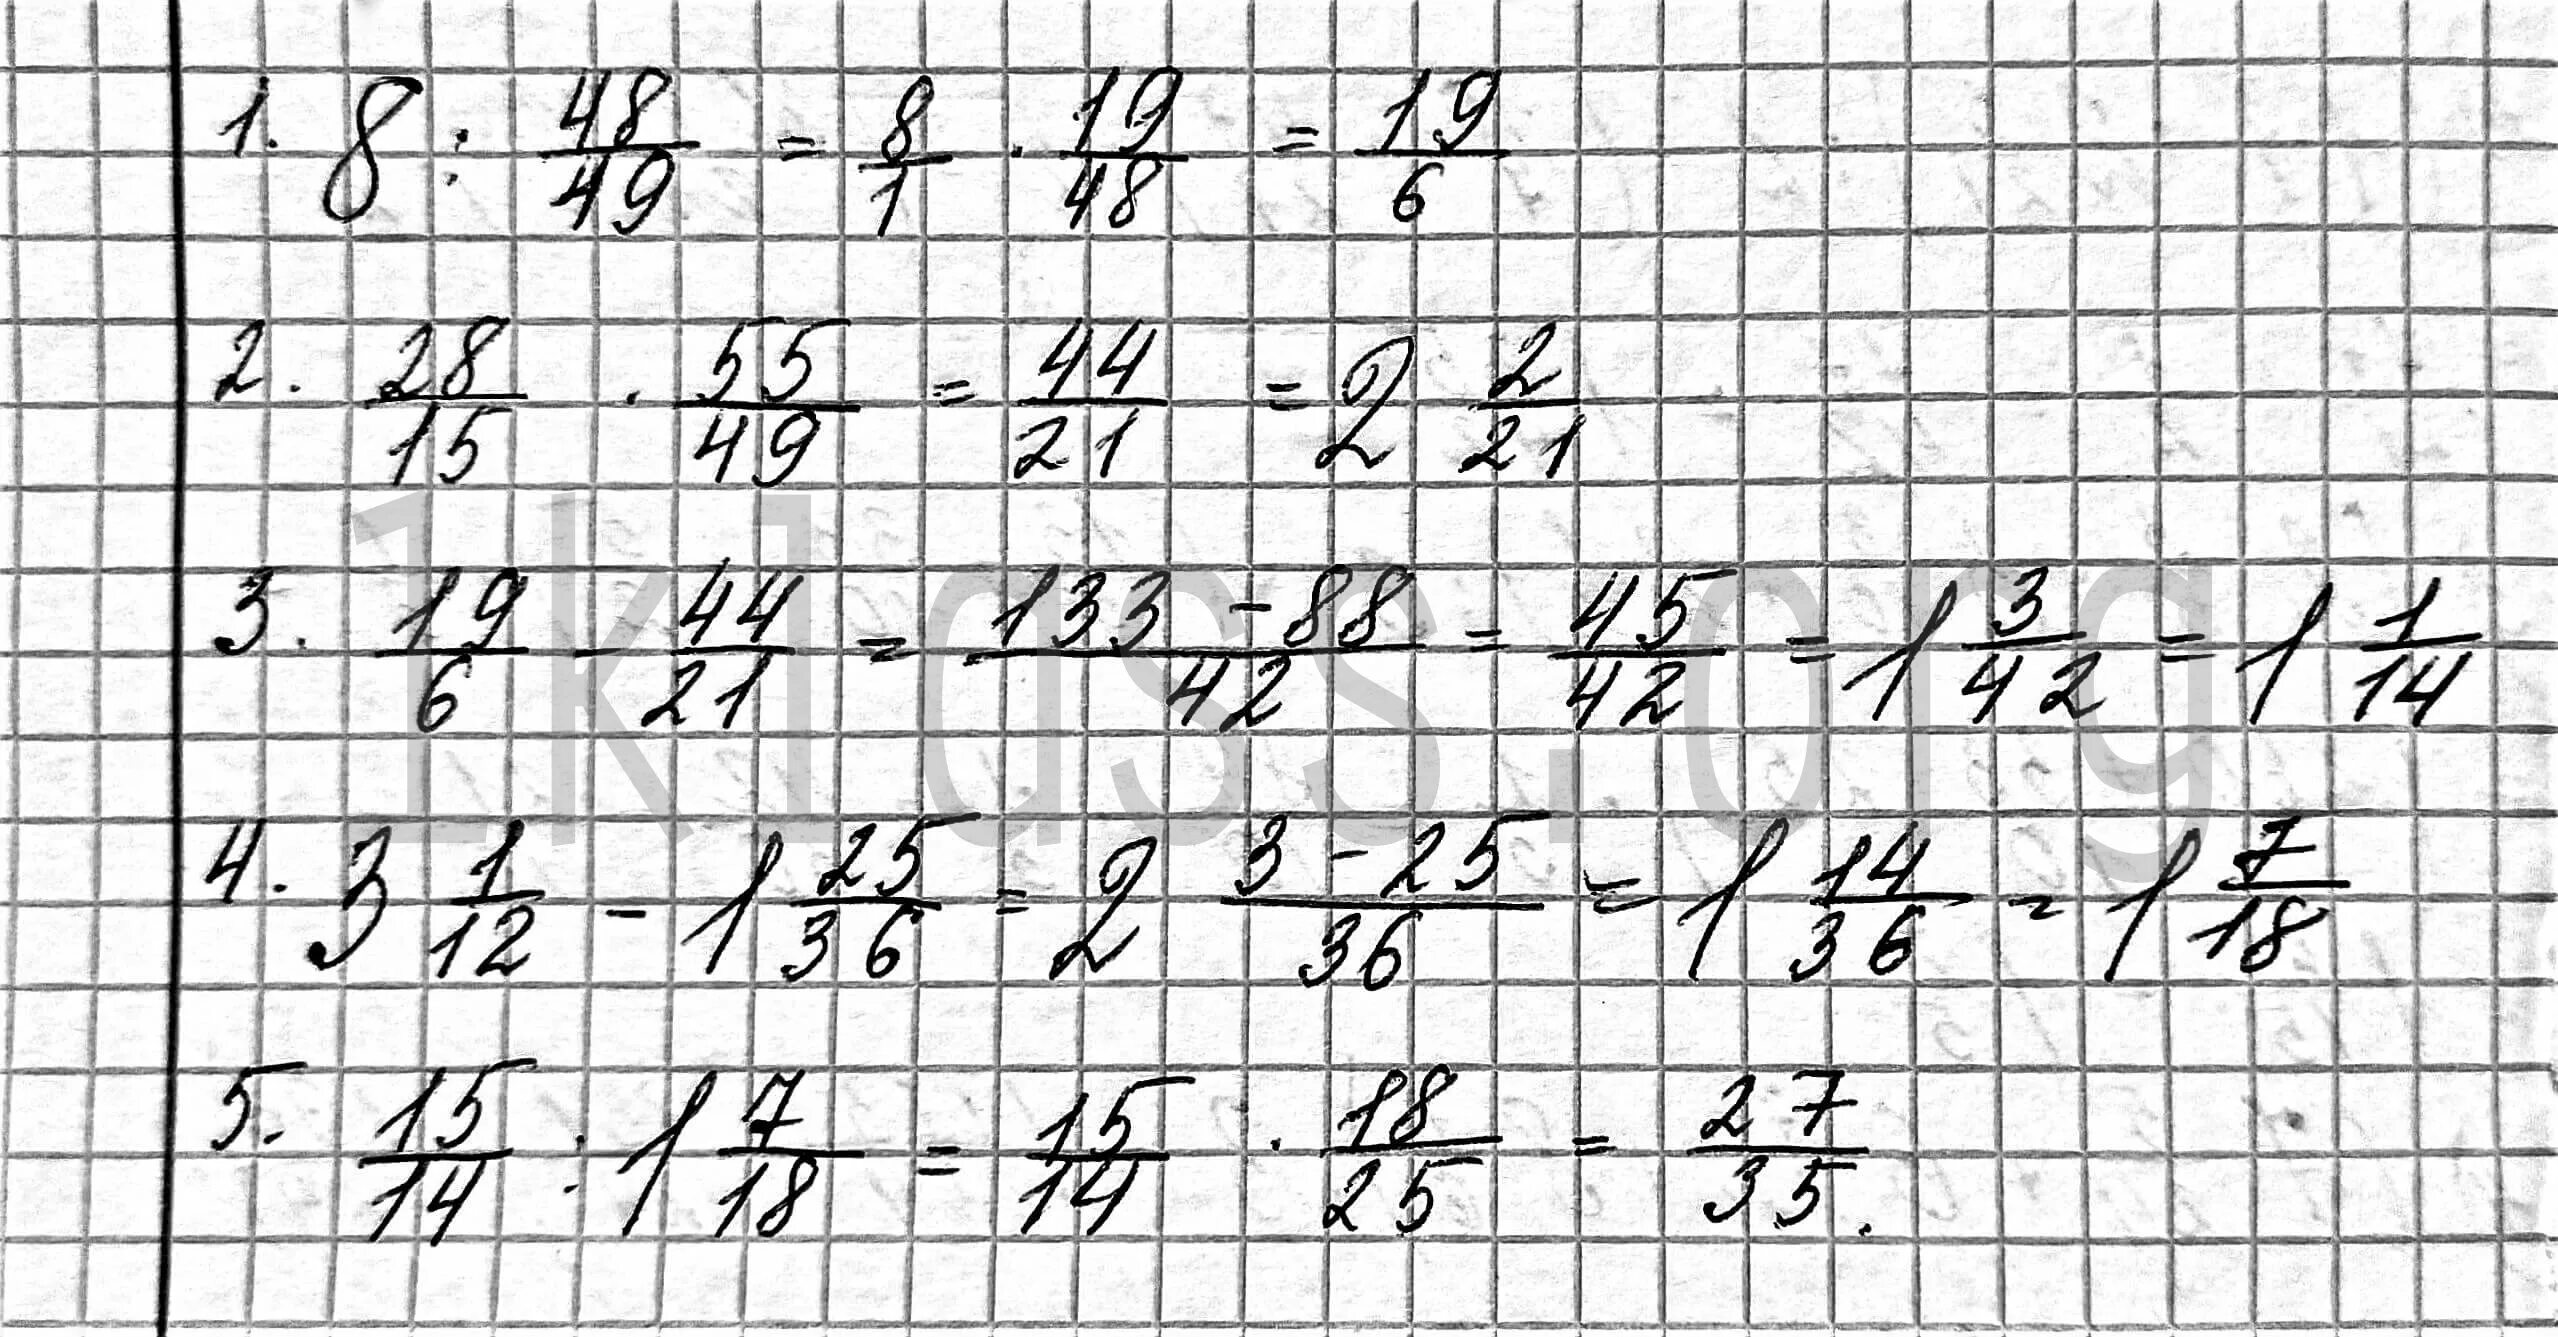 1. 8 : 48/49 = 8/1 · 19/48 = 19/6
2. 28/15 · 55/49 = 44/21 = 2 2/21
3. 19/6 - 44/21 = 133-88/42 = 45/42 = 1 3/42 = 1 1/14
4. 3 1/12 - 1 25/36 = 2 3-25/36 = 1 14/36 = 1 7/18
5. 15/14 : 1 7/18 = 15/14 · 18/25 = 27/35.
1klass.org